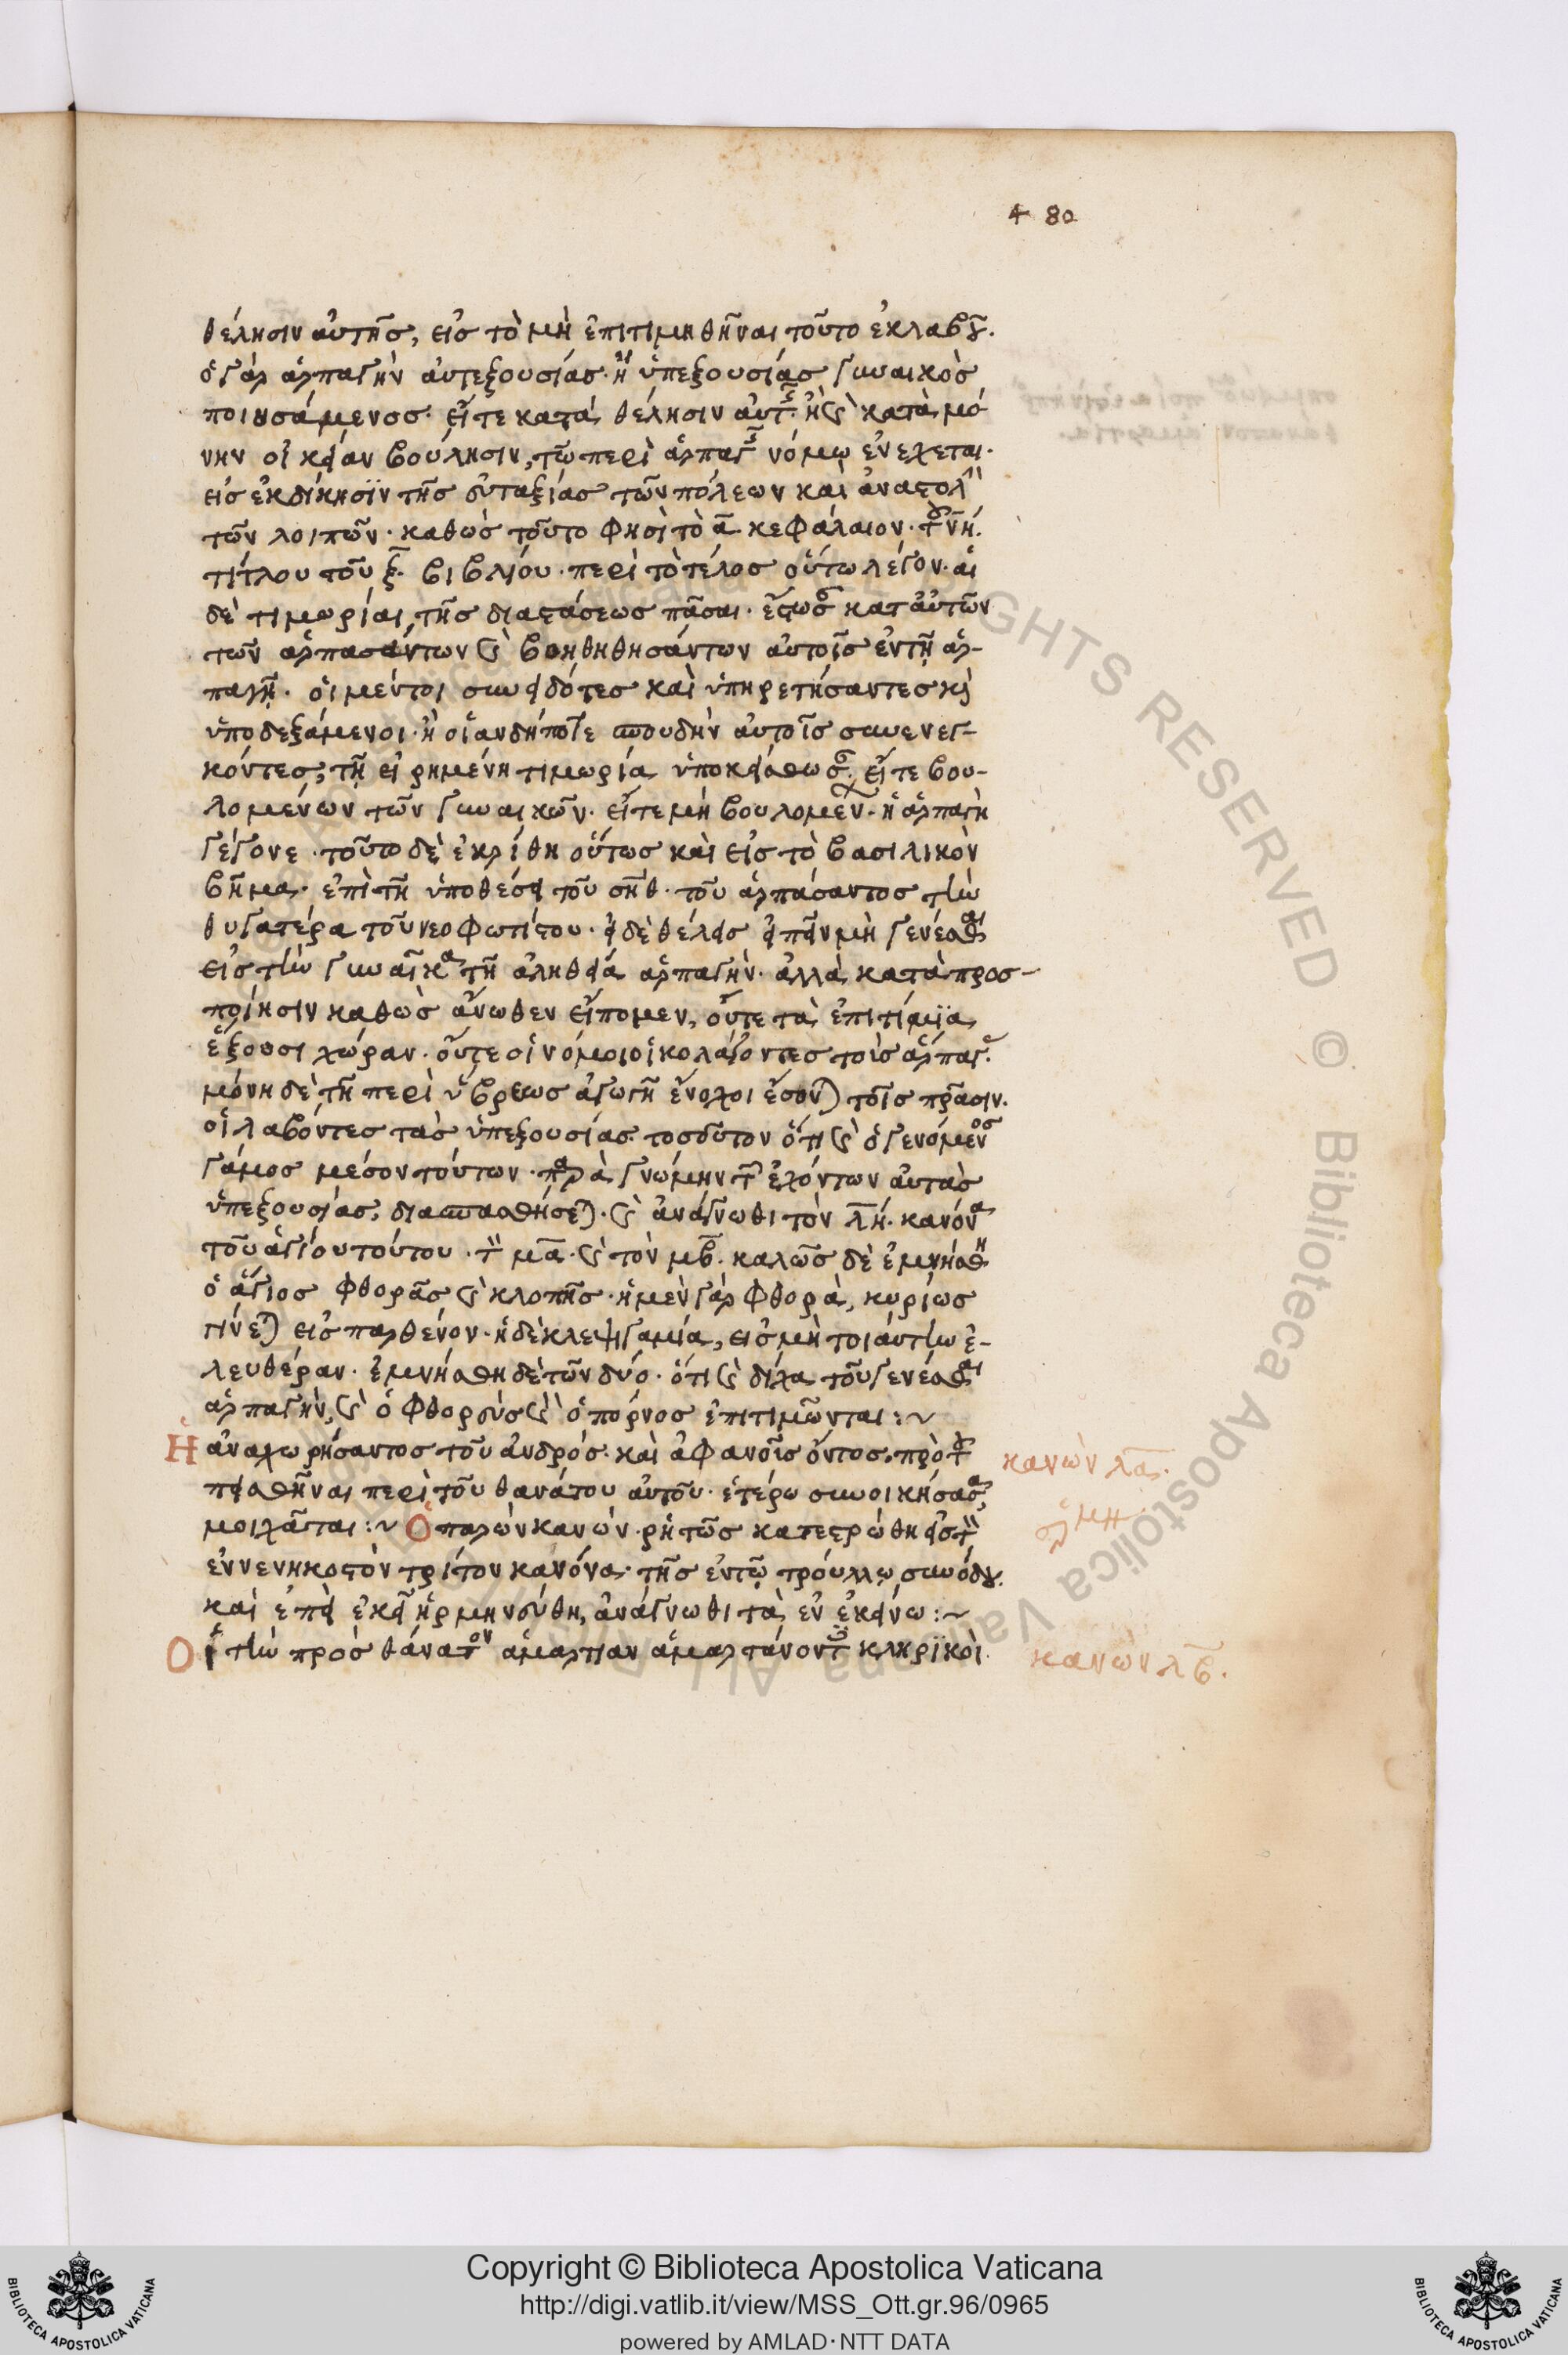 4 80
θέλησιν αὐτῆς, εἰς τὸ μὴ ἐπιτιμηθῆναι τοῦτο ἐκλαβοῦ.
ὁ γὰρ ἁρπαγὴν αὐτεξουσίας· ἢ ὑπεξουσίας γυναικὸς
ποιησάμενος· εἴτε κατὰ θέλησιν αὐτῆς· ἢ καὶ κατὰ μό
νην οἰκείαν βούλησιν, τῶ περὶ ἁρπαγῆς νόμω ἐνέχεται·
εἰς ἐκδίκησιν τῆς εὐταξίας τῶν πόλεων καὶ ἀναστολὴν
τῶν λοιπῶν· καθὼς τοῦτο φησὶ τὸ α κεφάλαιον· τοῦ νη
τίτλου τοῦ ξ βιβλίου· περὶ τὸ τέλος οὕτω λέγον· αἱ
δὲ τιμωρίαι, τῆς διατάσεως πᾶσαι· ἔστωσαν κατ αὐτῶν
τῶν ἁρπασάντων καὶ βοηθηθησάντων αὐτοῖς ἐν τῆ ἁρ-
παγῆ· οἱ μέντοι συνειδότες καὶ ὑπηρετήσαντες καὶ
ὑποδεξάμενοι· ἢ οἱανδήποτε σπουδὴν αὐτοῖς συνενεγ-
κόντες, τῆ εἰρημένη τιμωρία ὑποκείσθωσαν· εἴτε βου-
λομένων τῶν γυναικῶν· εἴτε μὴ βουλομένων· ἡ ἁρπαγὴ
γέγονε· τοῦτο δὲ ἐκρίθη οὕτως καὶ εἰς τὸ βασιλικὸν
βῆμα· ἐπὶ τῆ ὑποθέσει τοῦ σηθ· τοῦ ἁρπάσαντος τὴν
θυγατέρα τοῦ νεοφωτίστου· εἰ δὲ θέλεις εἰπεῖν μὴ γενέσθαι
εἰς τὴν γυναῖκα τῆ ἀληθεία ἁρπαγήν· ἀλλὰ κατὰ προσ-
ποίησιν καθὼς ἄνωθεν εἴπομεν, οὔτε τὰ ἐπιτίμια
ἕξουσι χώραν· οὔτε οἱ νόμοι οἱ κολάζοντες τοὺς ἅρπαγας·
μόνη δὲ τῆ περὶ ὕβρεως ἀγωγῆ ἔνοχοι ἔσονται τοῖς πράσιν·
οἱ λαβόντες τὰς ὑπεξουσίας· τοσοῦτον ὅτι καὶ ὁ γενόμενος
γάμος μέσον τούτων· παρὰ γνώμην τῶν ἐχόντων αὐτὰς
ὑπεξουσίας, διασπασθήσεται· καὶ ἀνάγνωθι τὸν λη· κανόνα
τοῦ ἁγίου τούτου· τὸν μα· καὶ τὸν μβ· καλῶς δὲ ἐμνήσθη
ὁ ἅγιος φθορᾶς καὶ κλοπῆς· ἡ μὲν γὰρ φθορὰ, κυρίως
γίνεται εἰς παρθένον· ἡ δὲ κλεψιγαμία, εἰς μὴ τοιαύτην ἐ-
λευθέραν· ἐμνήσθη δὲ τῶν δύο· ὅτι καὶ δίχα τοῦ γενέσθαι
ἁρπαγὴν, καὶ ὁ φθορεὺς καὶ ὁ πόρνος ἐπιτιμῶνται :~
Ἡ ἀναχωρήσαντος τοῦ ἀνδρός· καὶ ἀφανοῦς ὄντος, πρὸ τοῦ
κανὼν λα.
πεισθῆναι περὶ τοῦ θανάτου αὐτοῦ· ἑτέρω συνοικήσασα,
μοιχᾶται :~ Ὁ παρὼν κανὼν ῥητῶς κατεστρώθη εἰς τὸν
ἐννενηκοστὸν τρίτον κανόνα· τῆς ἐν τῶ τρούλλω συνόδου·
καὶ ἐπεὶ ἐκεῖ ἡρμηνεύθη, ἀνάγνωθι τὰ ἐν ἐκείνω :~
Οἱ τὴν πρὸς θάνατον ἁμαρτίαν ἁμαρτάνοντες κληρικοὶ
κανὼν λβ.
ALL RIGHTS RESERVED © Biblioteca Apostolica Vaticana
Copyright © Biblioteca Apostolica Vaticana
http://digi.vatlib.it/view/MSS_Ott.gr.96/0965
powered by AMLAD·NTT DATA
BIBLIOTECA APOSTOLICA VATICANA
BIBLIOTECA APOSTOLICA VATICANA